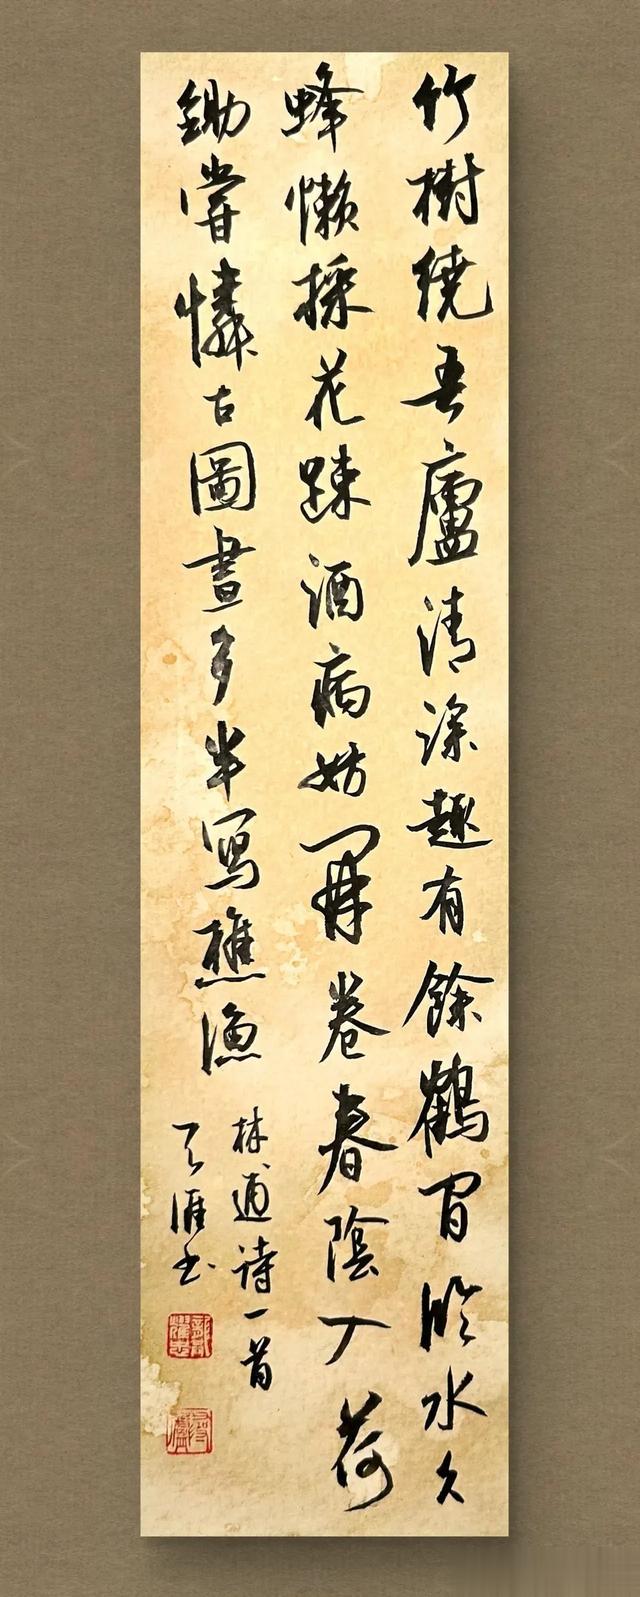 竹樹繞吾廬清深趣有餘鶴間臨水久
蜂懶採花踈酒病妨開卷春陰入荷
鋤嘗憐古圖畫多半寫樵漁
林逋诗一首
天涯书